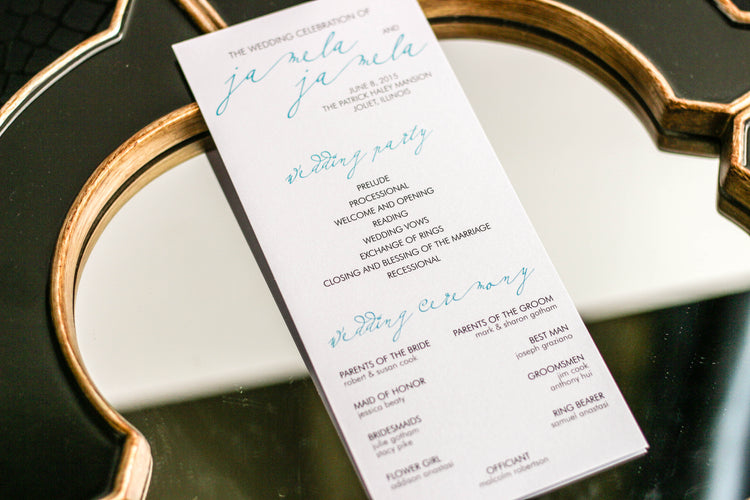 THE WEDDING CELEBRATION OF
jamela AND
jamela
JUNE 8, 2015
THE PATRICK HALEY MANSION
JOLIET, ILLINOIS
wedding party
PRELUDE
PROCESSIONAL
WELCOME AND OPENING
READING
WEDDING VOWS
EXCHANGE OF RINGS
CLOSING AND BLESSING OF THE MARRIAGE
RECESSIONAL
wedding ceremony
PARENTS OF THE BRIDE
robert & susan cook
MAID OF HONOR
jessica beaty
BRIDESMAIDS
julie gotham
stacy pike
FLOWER GIRL
addison anastasi
PARENTS OF THE GROOM
mark & sharon gotham
BEST MAN
joseph graziano
GROOMSMEN
jim cook
anthony hui
RING BEARER
samuel anastasi
OFFICIANT
malcolm robertson